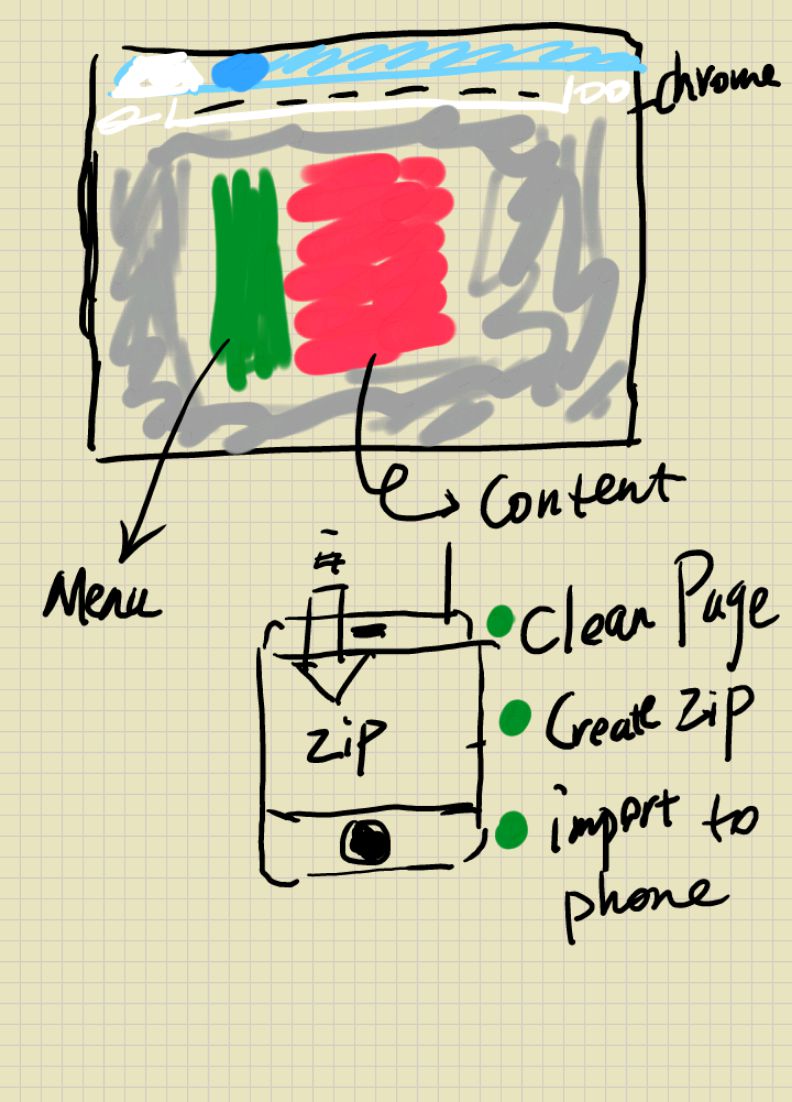 chrome
100
Content
Menu
Clean Page
zip
Create zip
import to
phone